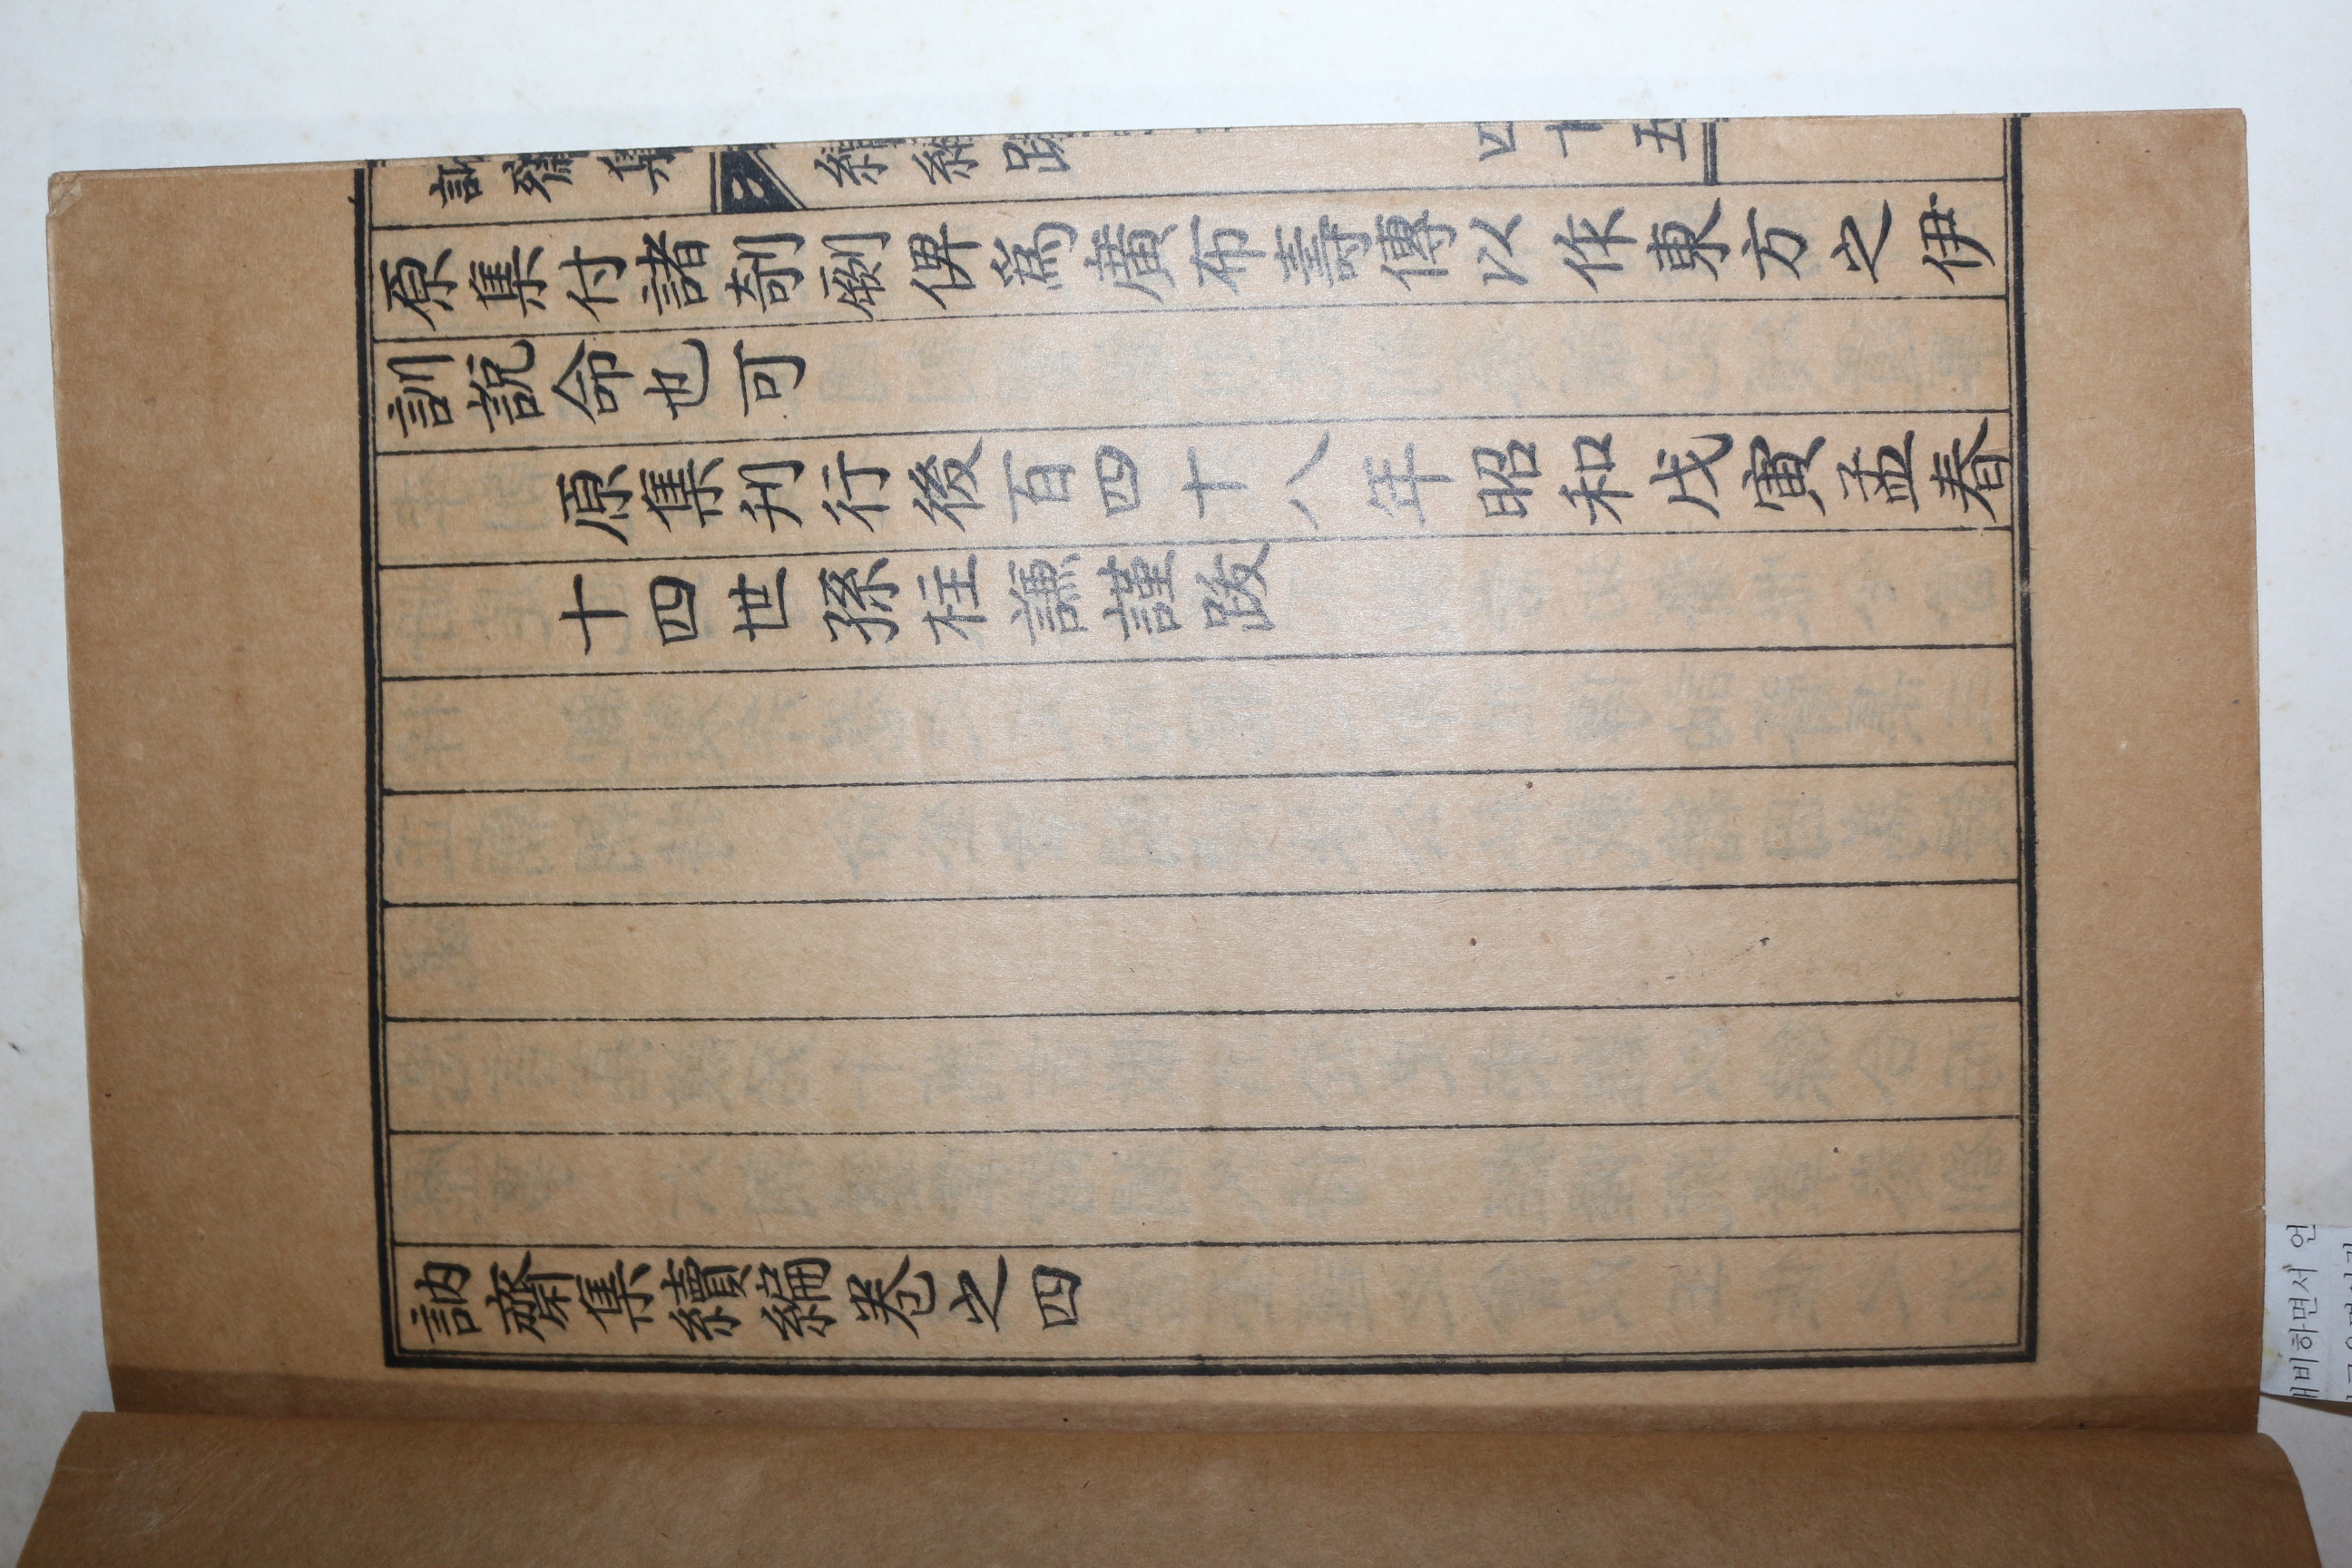 訥齋集
續編跋
四十五
原集付諸剞劂俾爲廣布壽傳以作東方之伊
訓說命也可
原集刋行後百四十八年昭和戊寅孟春
十四世孫柱謙謹跋
訥齋集續編卷之四
대비하면서 언